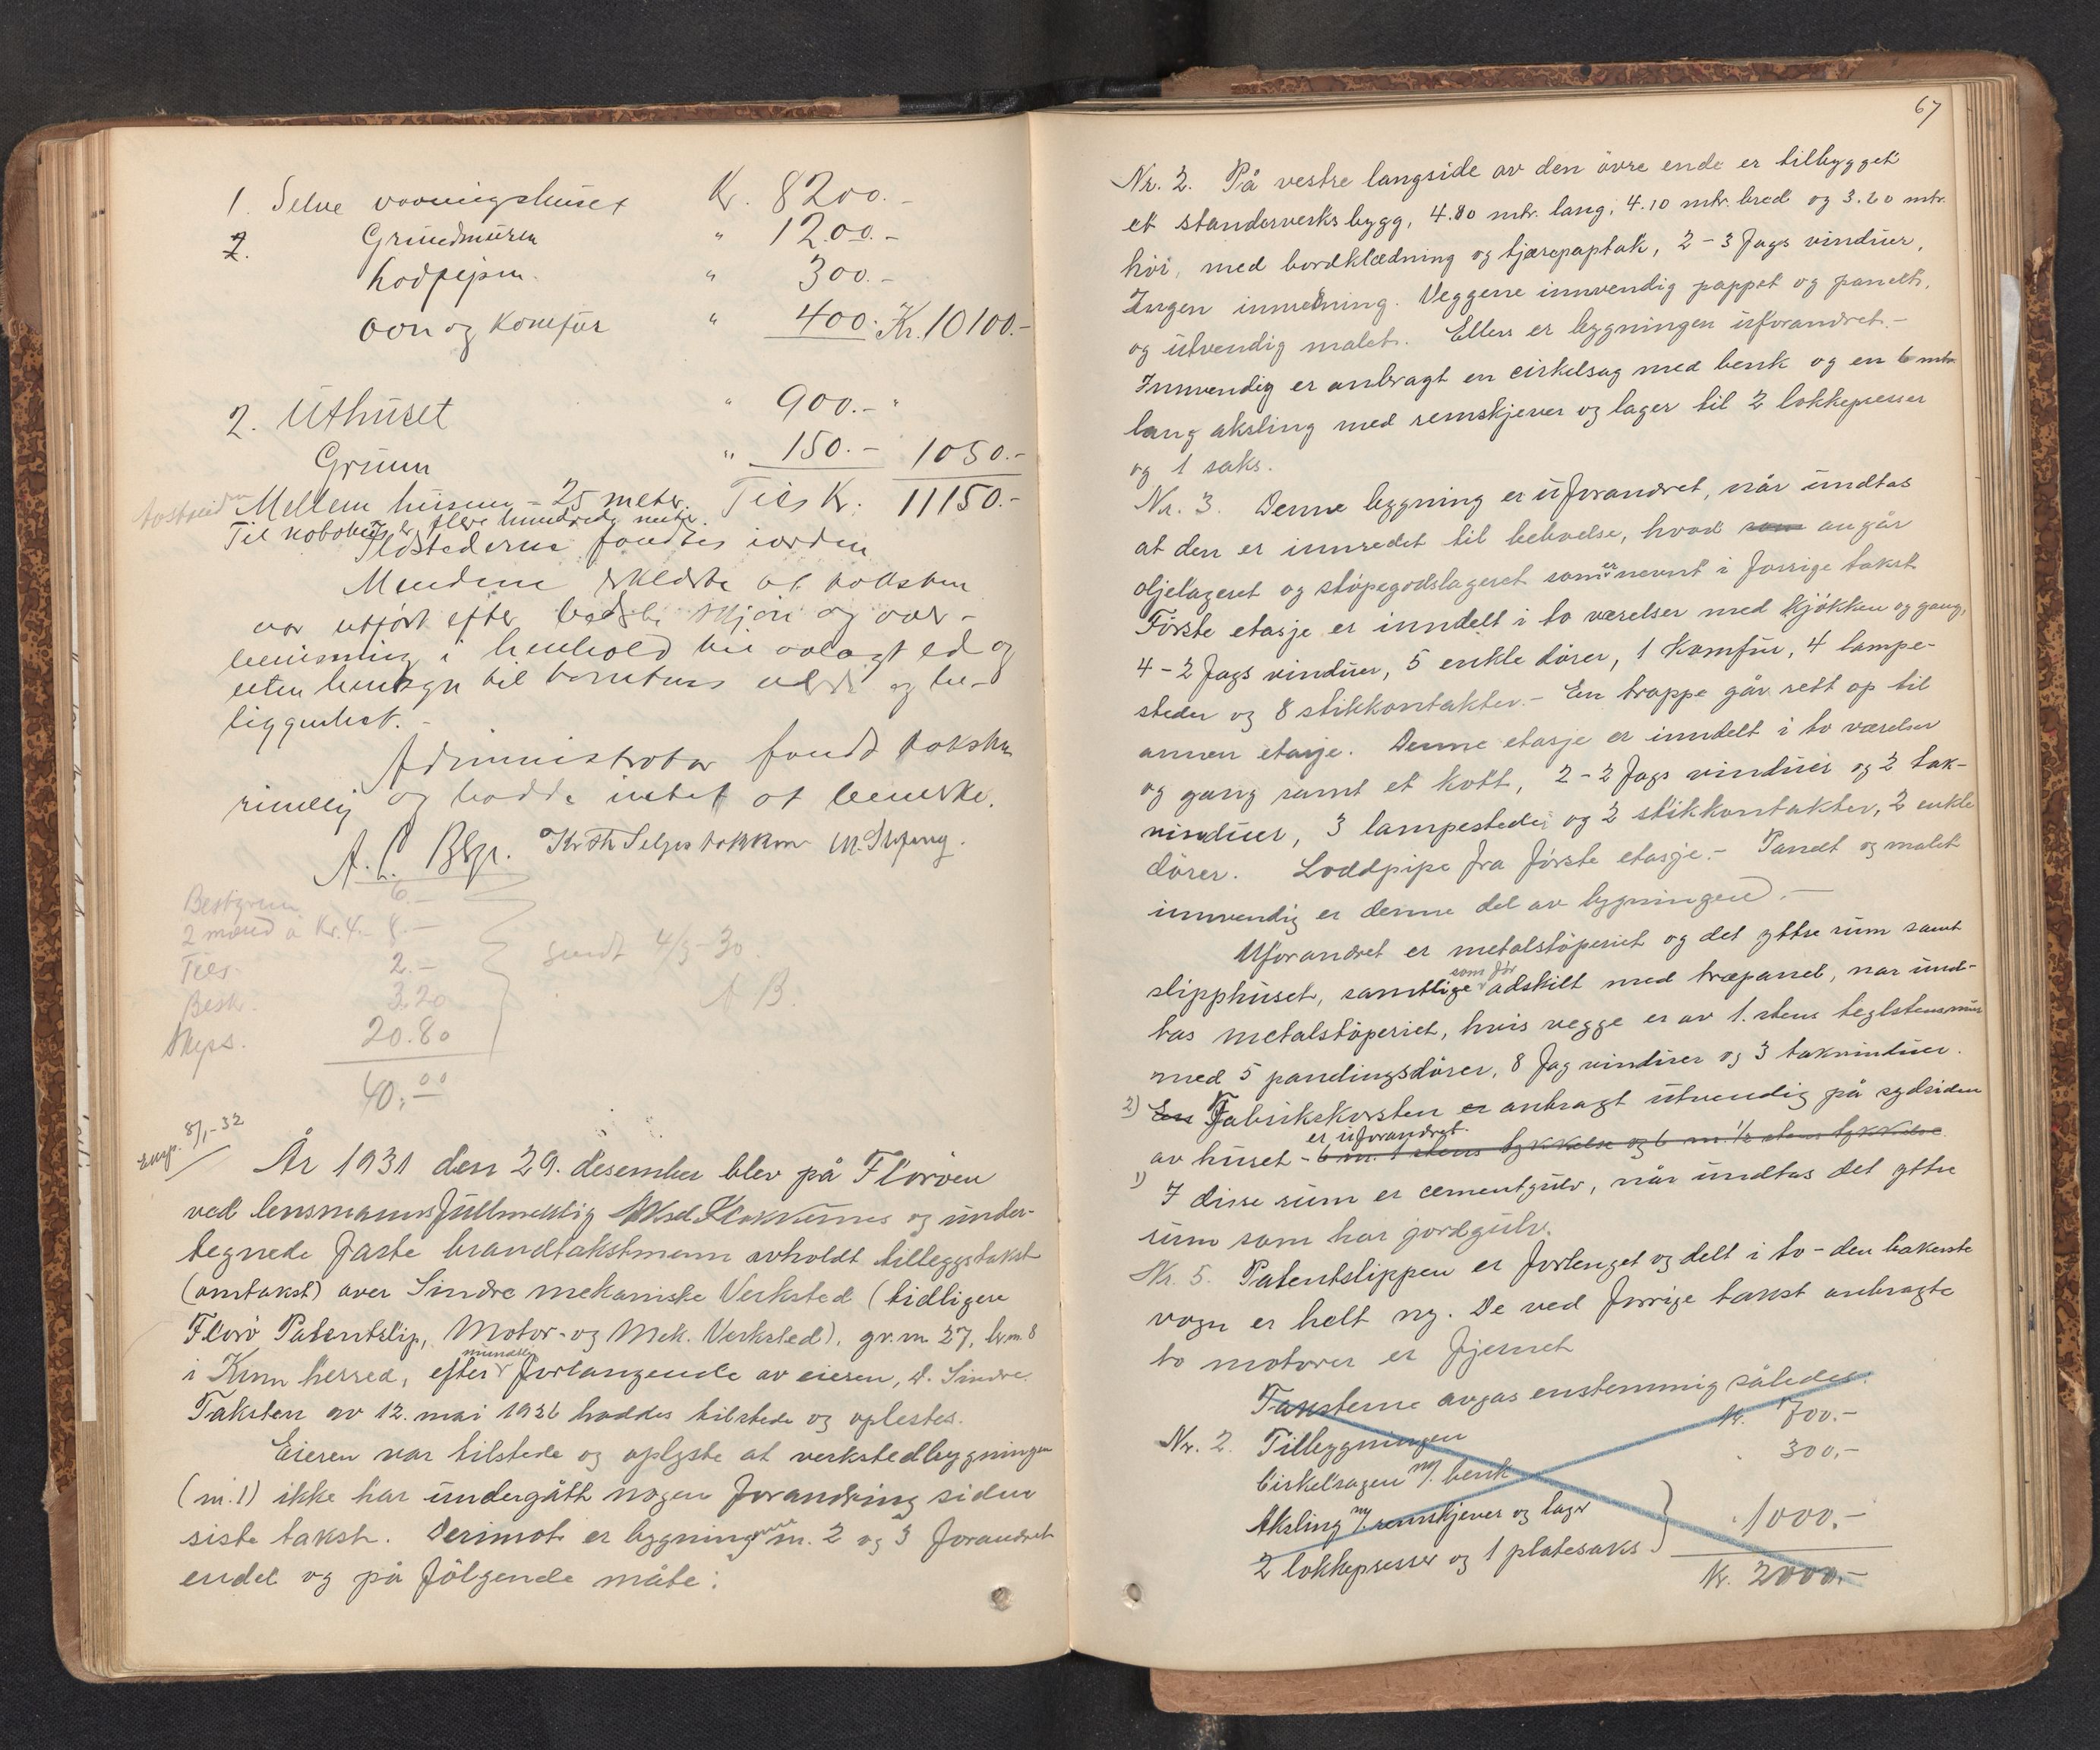 1. Selve vaaningshuset Kr. 8200.-
2. Grundmuren " 1200.-
Lodpipen " 300.-
Ovn og komfur " 400.- Kr. 10100.-
2. Uthuset " 900.- "
Grunn " 150.- 1050.-
Mellem husene - 25 meter. Tils Kr. 11150.-
Til nabohus er flere hundrede meter.
Ildstederne fandtes iorden
Mendene erklærte at taksten
var utført efter bedste skjøn og over-
bevisning i henhold til avlagt ed og
uten hensyn til tomtens verdi og be-
liggenhet.-
Administrator fandt taksten
rimelig og hadde intet at bemerke.
Bestyreren 6.-
2 mænd a Kr. 4.- 8.-
Tils. 2.-
Besk. 3.20
Skyss. 20.80
40.00
sendt 4/3-30
A B
Eksp. 8/1-32
År 1931 den 29. desember blev på Florøen
ved lensmannsfullmektig og under-
tegnede faste brandtakstmenn avholdt tilleggstakst
(omtakst) over Sindre mekaniske Verksted (tidligere
Florø Patentslip, Motor- og Mek. Verksted), gr.nr. 27, br.nr. 8
i Kinn herred, efter mundtlig forlangende av eieren, A. Sindre.
Taksten av 12. mai 1926 haddes tilstede og oplestes.
Eieren var tilstede og oplyste at verkstedbygningen
(nr. 1) ikke har undergått nogen forandring siden
siste takst. Derimot er bygningene nr. 2 og 3 forandret
endel og på følgende måte:
67
Nr. 2. På vestre langside av den øvre ende er tilbygget
et standerverks bygg, 4.80 mtr. lang, 4.10 mtr. bred og 3.20 mtr.
høi, med bordklædning og tjærepaptak, 2 - 3 fags vinduer,
Ingen innredning. Veggene innvendig pappet og panelt,
og utvendig malet. Ellers er bygningen uforandret.-
Innvendig er anbragt en cirkelsag med benk og en 6 mtr.
lang aksling med remskjever og lager til 2 lokkepresser
og 1 saks.
Nr. 3. Denne bygning er uforandret, når undtas
at den er innredet til beboelse, hvad som angår
oljelageret og støpegodslageret som er nevnt i forrige takst
Første etasje er inndelt i to værelser med kjøkken og gang,
4 - 2 fags vinduer, 5 enkle dører, 1 komfur, 4 lampe-
steder og 8 stikkontakter.- En trappe går rett op til
annen etasje. Denne etasje er inndelt i to værelser
og gang samt et kott, 2 - 2 fags vinduer og 2 tak-
vinduer, 3 lampesteder og 2 stikkontakter, 2 enkle
dører. Loddpipe fra første etasje.- Panelt og malet
innvendig er denne del av bygningen.-
Uforandret er metalstøperiet og det yttre rum samt
slipphuset, samtlige som før adskilt med træpanel, når und-
tas metalstøperiet, hvis vegge er av 1. stens teglstensmur
med 5 panelingsdører, 8 fag vinduer og 3 takvinduer.
2) En Fabrikskorsten er anbragt utvendig på sydsiden
av huset - er uforandret. 6 m. 1 stens tykkelse og 6 m. 1/2 stens tykkelse
1) I disse rum er cementgulv, når undtas det yttre
rum som har jordgulv.
Nr. 5. Patentslippen er forlenget og delt i to - den bakerste
vogn er helt ny. De ved forrige takst anbragte
to motorer er fjernet
Taksterne avgas enstemmig således:
Nr. 2. Tilbygningen Kr. 700.-
Cirkelsagen m/. benk " 300.-
Aksling m/ remskjever og lager
2 lokkepresser og 1 platesaks } " 1000.-
Kr. 2000.-